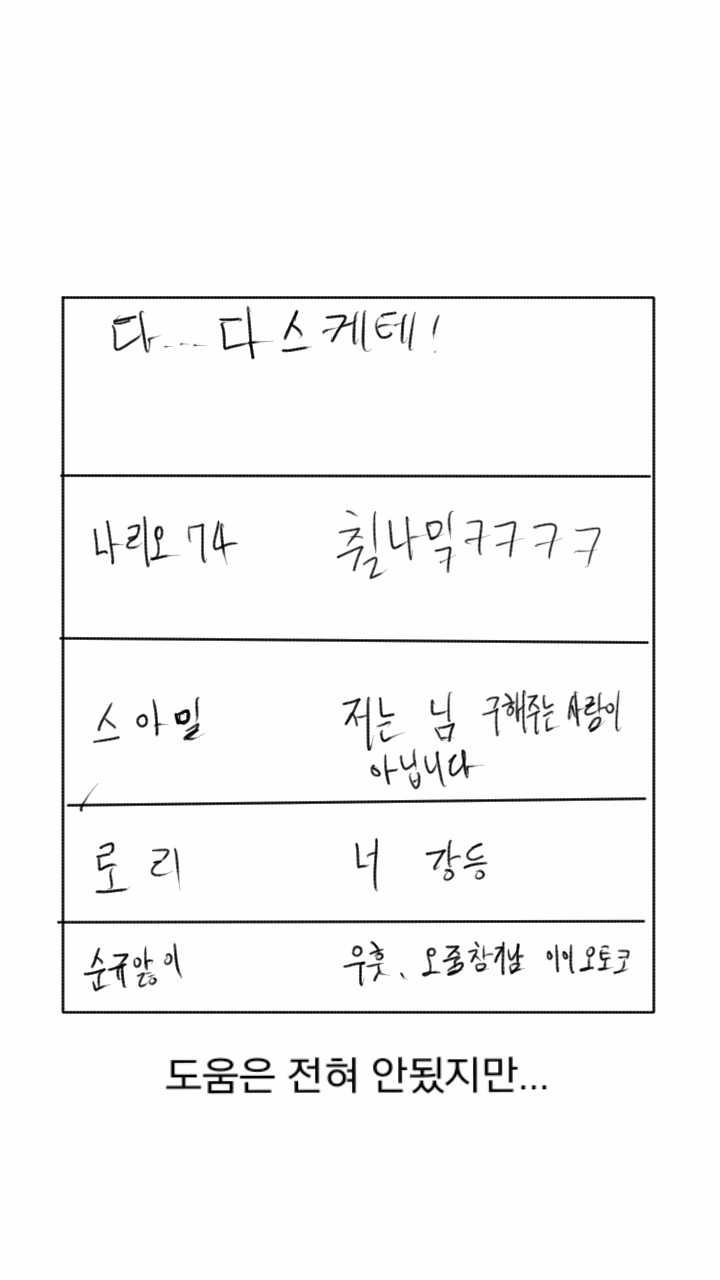 다... 다스케테!
나리오 74 췰나밐ㅋㅋㅋㅋ
스아밀 저는 님 구해주는 사람이
아닙니다
로리 너 강등
순규앓이 우훗、오줌참개남 이이오토코
도움은 전혀 안됐지만...